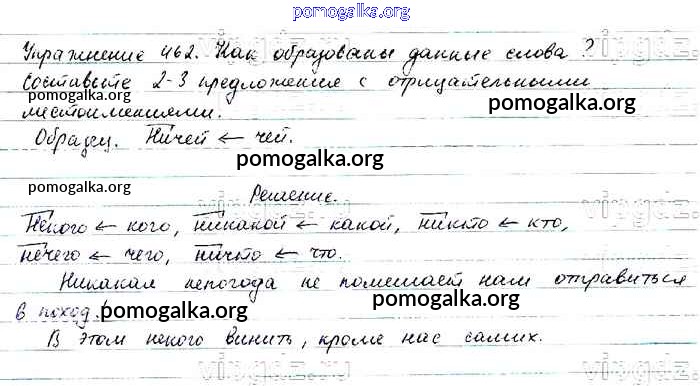 pomogalka.org
Упражнение 462. Как образованы данные слова?
Составьте 2-3 предложения с отрицательными
pomogalka.org
pomogalka.org
местоимениями.
Образец. Ничей ← чей.
pomogalka.org
pomogalka.org
Решение.
Некого ← кого, никакой ← какой, никто ← кто,
нечего ← чего, ничто ← что.
pomogalka.org
Никакая непогода не помешает нам отправиться
в поход!
pomogalka.org
pomogalka.org
В этом некого винить, кроме нас самих.
vipgdz.ru